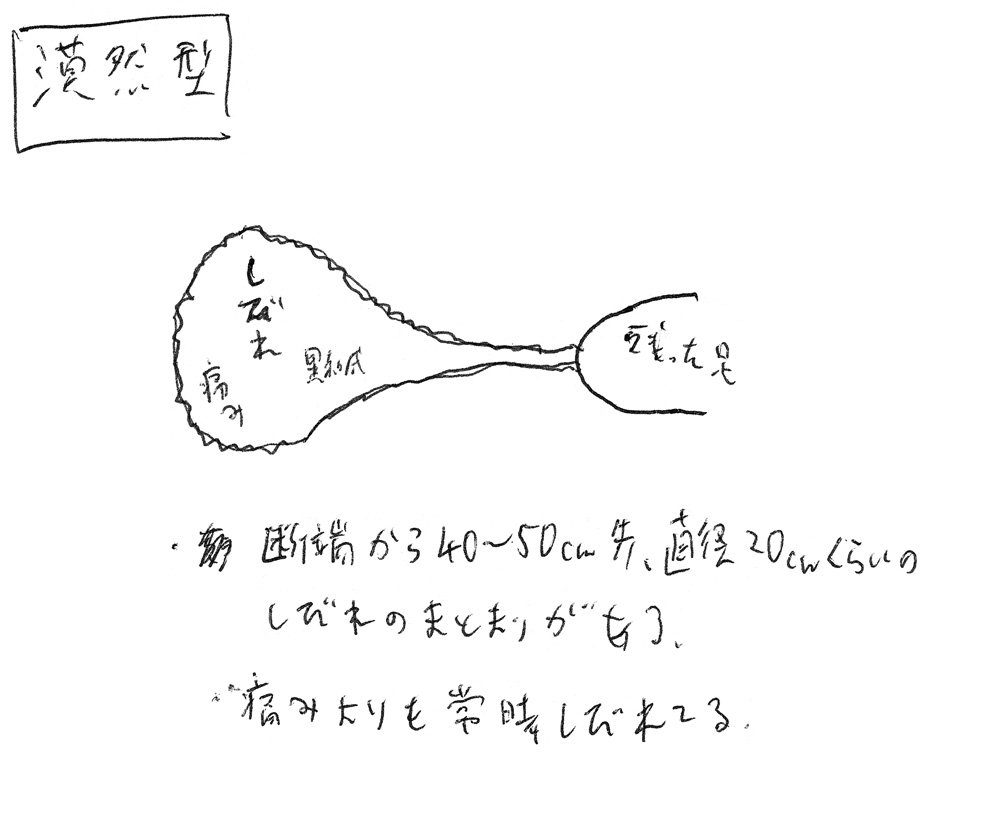 漠然型
しびれ
痛み
違和感
残った足
・断端から40〜50cm先、直径20cmくらいの
しびれのまとまりがある。
・痛みよりも常時しびれてる。